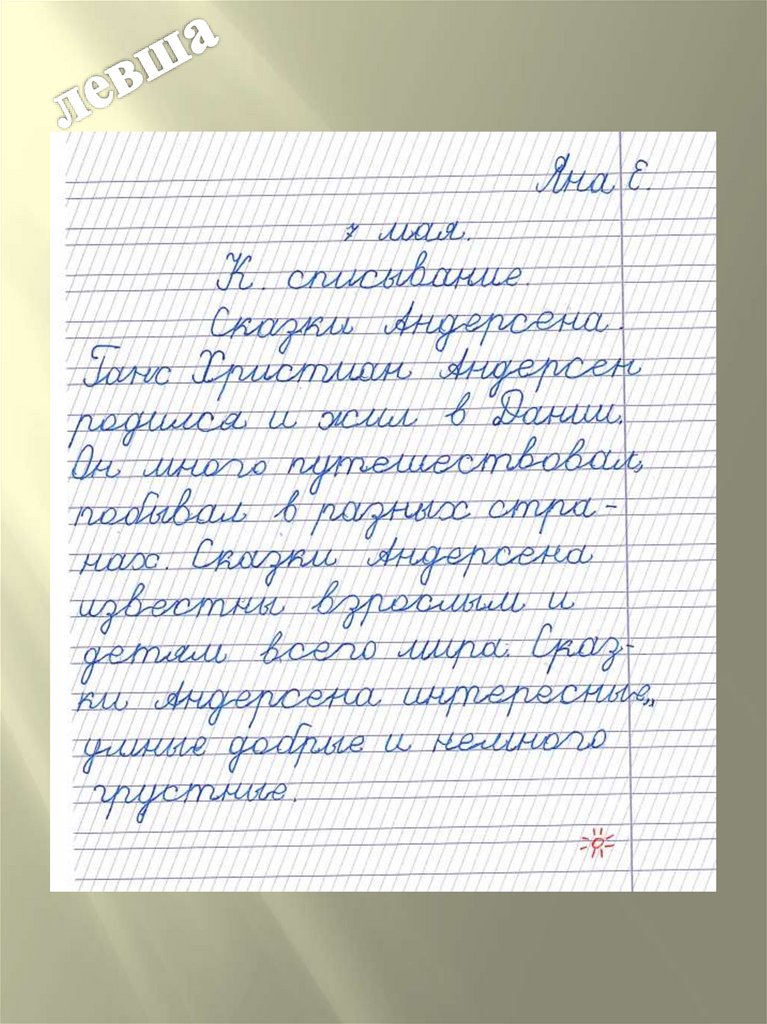 левша
Яна Е.
7 мая.
К. списывание.
Сказки Андерсена.
Ганс Христиан Андерсен
родился и жил в Дании.
Он много путешествовал,
побывал в разных стра-
нах. Сказки Андерсена
известны взрослым и
детям всего мира. Сказ-
ки Андерсена интересные,,
умные добрые и немного
грустные.